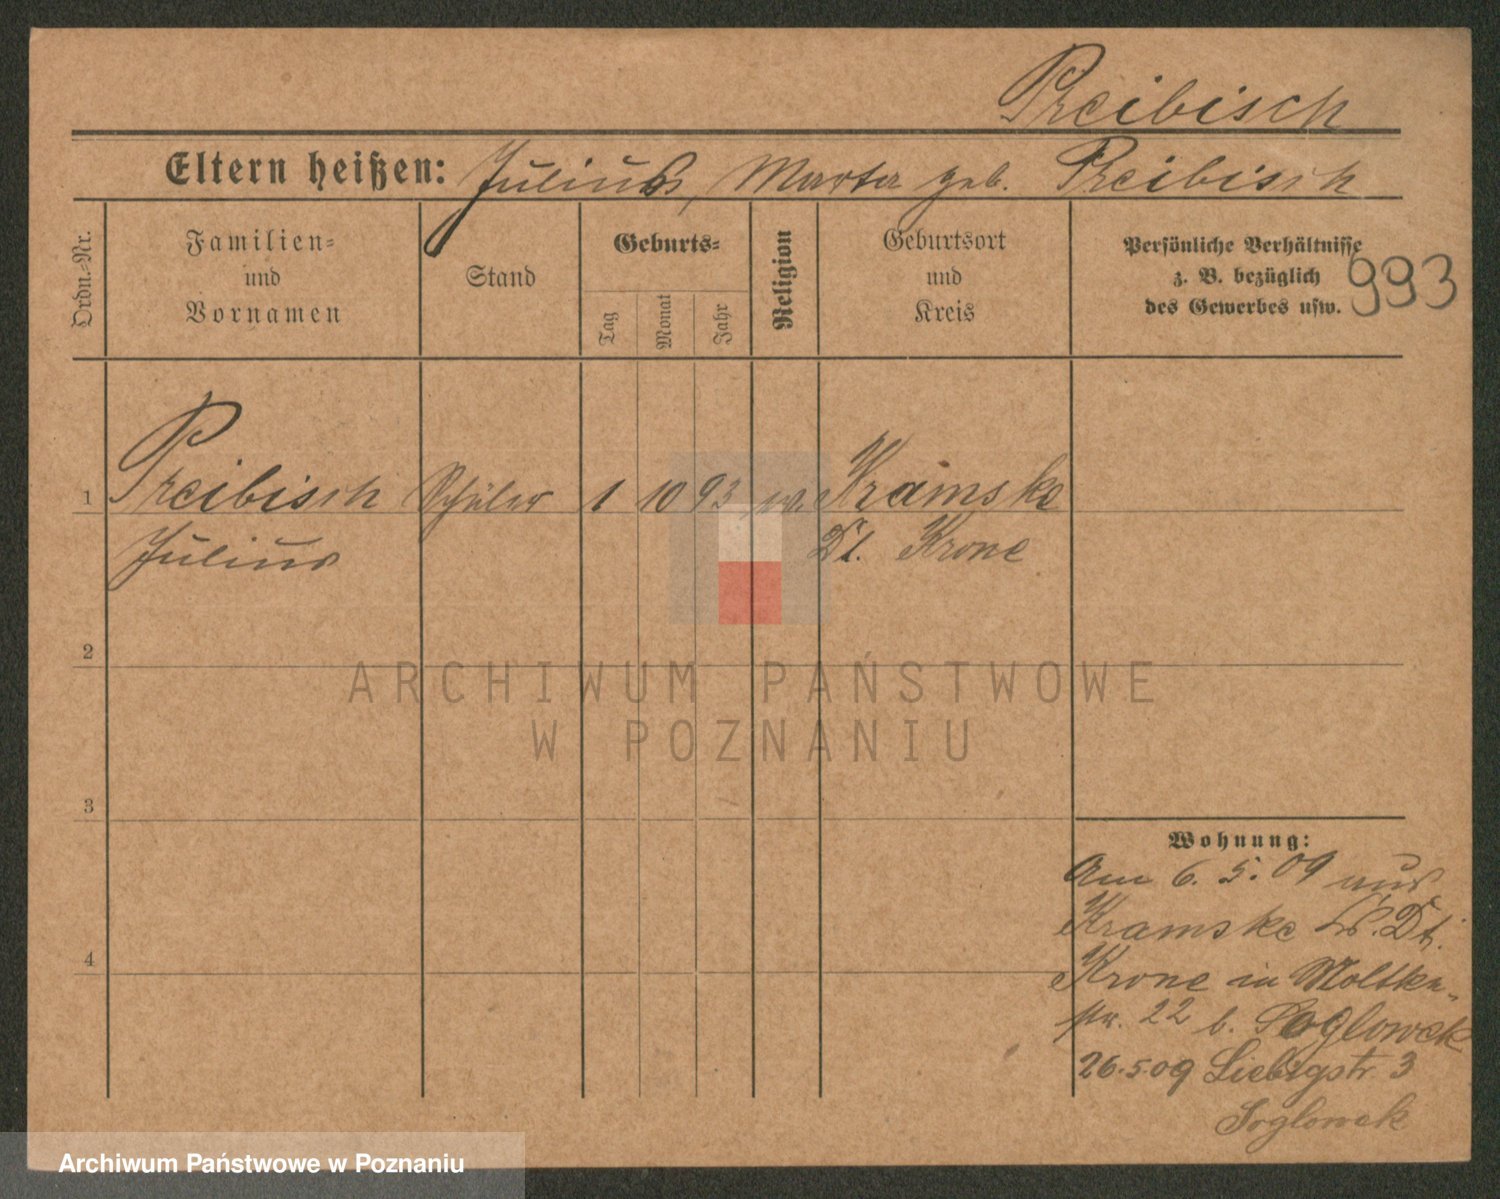 Preibisch
Eltern heißen: Julius, Marta geb. Preibisch
Ordn.-Nr.
Familien-
und
Vornamen
Stand
Geburts-
Tag
Monat
Jahr
Religion
Geburtsort
und
Kreis
Persönliche Verhältnisse
z. B. bezüglich
des Gewerbes usw.
993
1 Preibisch Schüler 1 10 93 Kramske
Julius Dt. Krone
2
ARCHIWUM PAŃSTWOWE
W POZNANIU
3
Wohnung:
Am 6. 5. 09 aus
Kramske Dt.
4
Krone in Moltke-
str. 22 b. Soglowek
26.5.09 Liebigstr. 3
Soglowek
Archiwum Państwowe w Poznaniu